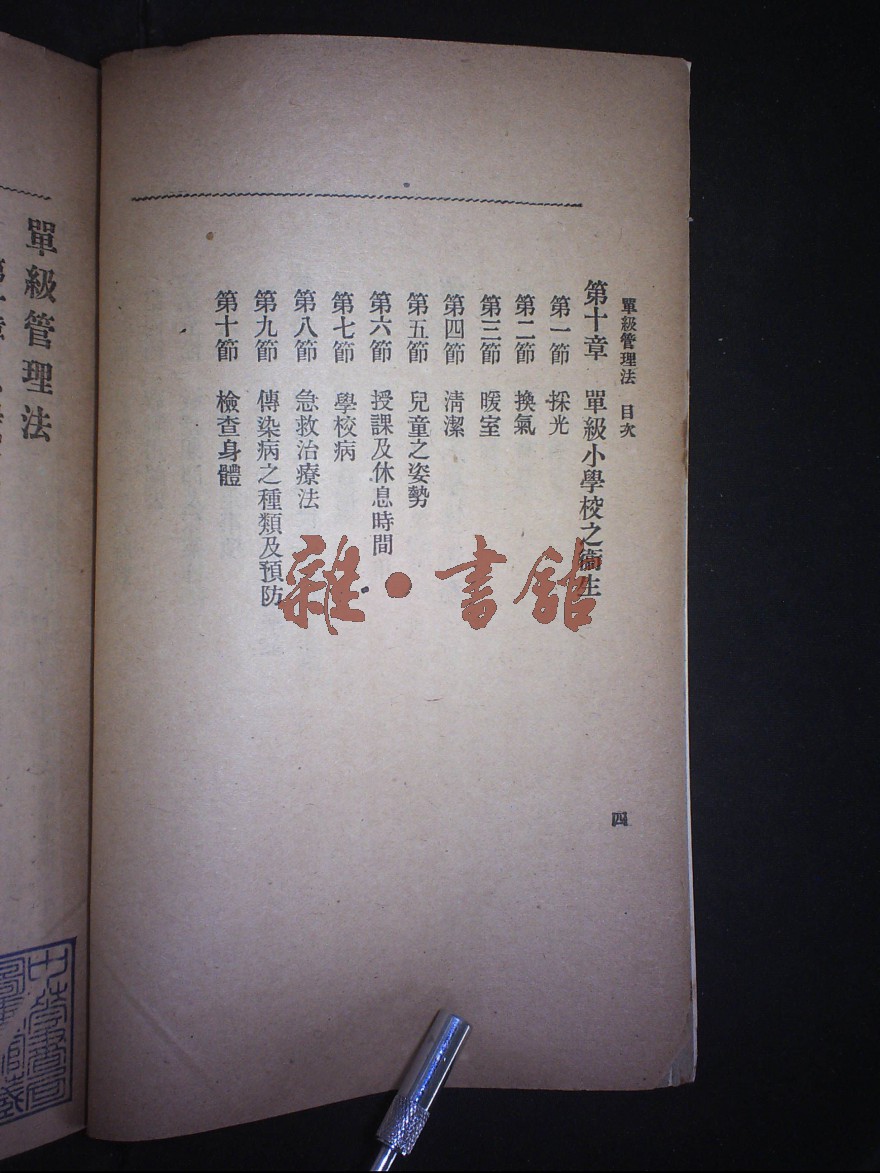 單級管理法 目次
第十章 單級小學校之衞生
第一節 採光
第二節 換氣
第三節 暖室
第四節 淸潔
第五節 兒童之姿勢
第六節 授課及休息時間
第七節 學校病
第八節 急救治療法
第九節 傳染病之種類及預防
第十節 檢查身體
四
雜·書館
單級管理法